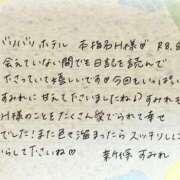 バリバリホテル 本指名H様♡ R8.8
会えていない間でも日記を読んで
ださっていて嬉しいです♡今回もいっぱい
すみれに甘えてましたね♪すみれも
H様のことをたくさん愛でられて幸せ
でした♡また色々溜まったらスッキリしに
いらしてださいね♡
新保 すみれ